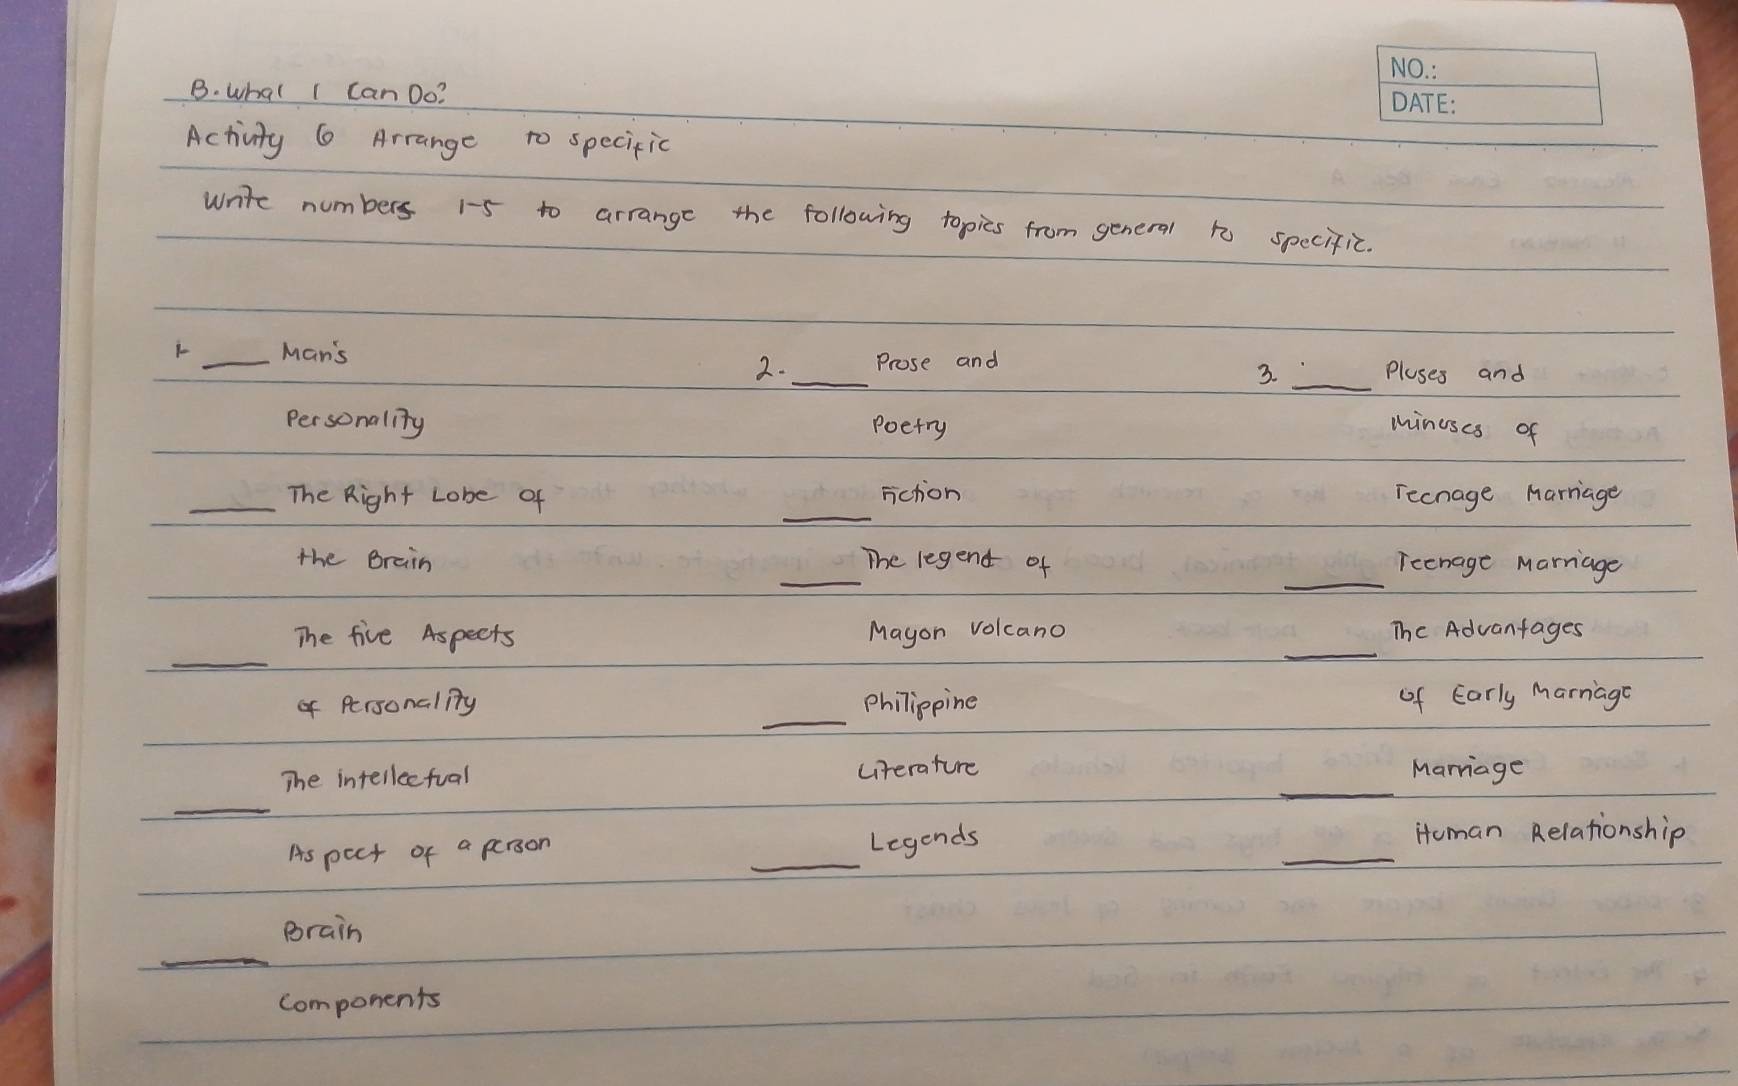 NO.:
DATE:
B. What I Can Do?
Activity 6 Arrange to specific
Write numbers 1-5 to arrange the following topics from general to specific.
1. ____ Man's
Personality
____ The Right Lobe of
the Brain
____ The five Aspects
of Personality
____ The intellectual
Aspect of a person
____ Brain
Components
2. ____ Prose and
Poetry
____ Fiction
____ The legend of
Mayon Volcano
____ Philippine
Literature
____ Legends
3. ____ Pluses and
Minuses of
Teenage Marriage
____ Teenage Marriage
____ The Advantages
of Early Marriage
____ Marriage
____ Human Relationship